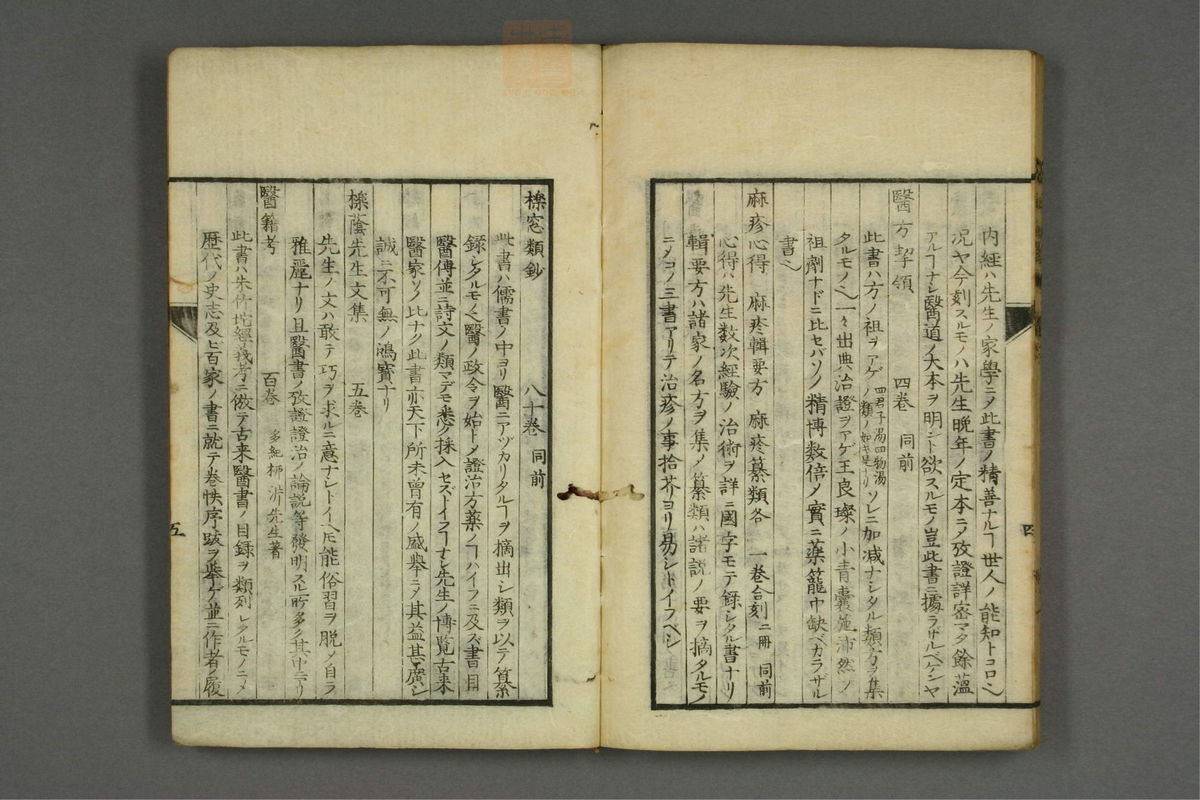 内經ハ先生ノ家學ニシテ此書ノ精善ナルヿ世人ノ能知トコロ也
况ヤ今刻スルモノハ先生晩年ノ定本ニシテ攷證詳密マタ餘蘊
アルヿナシ醫道ノ大本ヲ明ント欲スルモノ豈此書ニ據ラザルベケンヤ
醫方挈領 四卷 同前
此書ハ方ノ祖ヲアゲ 四君子湯四物湯ノ類ノ如キ是ナリ ソレニ加减ナシタル類方ヲ集
タルモノ也一々出典治證ヲアゲ王良璨ノ小青囊施沛然ノ
祖劑ナドニ比セバソノ精博数倍ノ實ニ藥籠中缺ベカラザル
書也
麻疹心得 麻疹輯要方 麻疹纂類各 一卷合刻二冊 同前
心得ハ先生数次經驗ノ治術ヲ詳ニ國字モテ録シタル書ナリ
輯要方ハ諸家ノ名方ヲ集メ纂類ハ諸説ノ要ヲ摘タルモノ
ニメコノ三書アリテ治疹ノ事拾芥ヨリ易シトイフベシ
四
櫟窓類鈔 八十卷 同前
此書ハ儒書ノ中ヨリ醫ニアヅカリタルヿヲ摘出シ類ヲ以テ纂
録シタルモノ也醫ノ政令ヲ始トメ證治方藥ノヿハイフニ及ズ書目
醫傳並ニ詩文ノ類マデモ悉ク採入セズトイフヿナシ先生ノ博覧古来
醫家ソノ比ナク此書亦天下所未曾有ノ盛擧ニメ其益甚廣シ
誠ニ不可無ノ鴻寶ナリ
櫟蔭先生文集 五卷
先生ノ文ハ敢テ巧ヲ求ルニ意ナシトイヘ𪜈能俗習ヲ脱メ自ラ
雅麗ナリ且醫書ノ攷證證治ノ論説等發明スル所多ク其中ニアリ
醫籍考 百卷 多紀柳沜先生著
此書ハ朱竹垞經義考ニ倣テ古来醫書ノ目録ヲ類列シタルモノニメ
歴代ノ史志及ヒ百家ノ書ニ就テ卷帙序跋ヲ擧ゲ並ニ作者ノ履
五